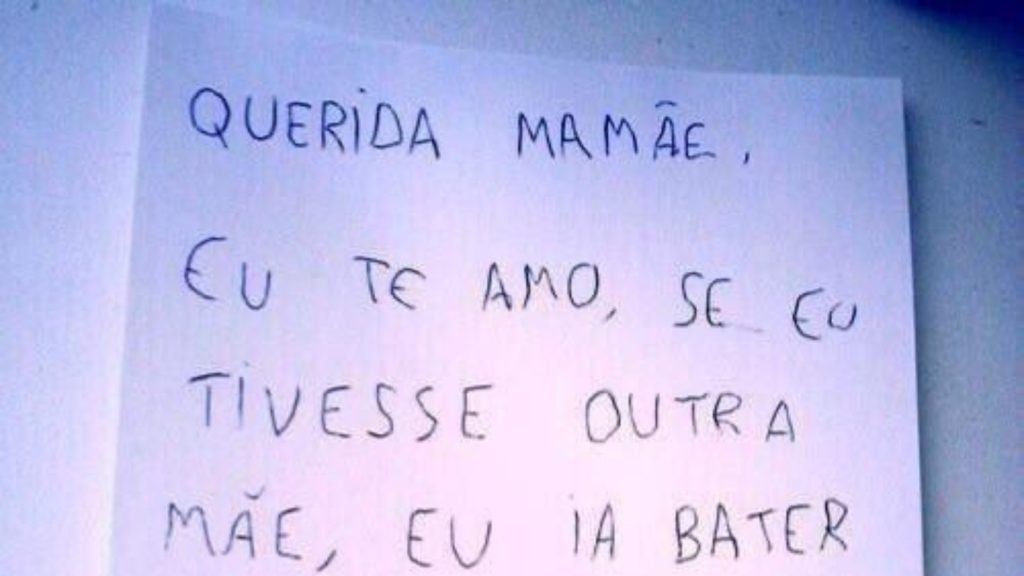 QUERIDA MAMÃE,
EU TE AMO, SE EU
TIVESSE OUTRA
MÃE, EU IA BATER